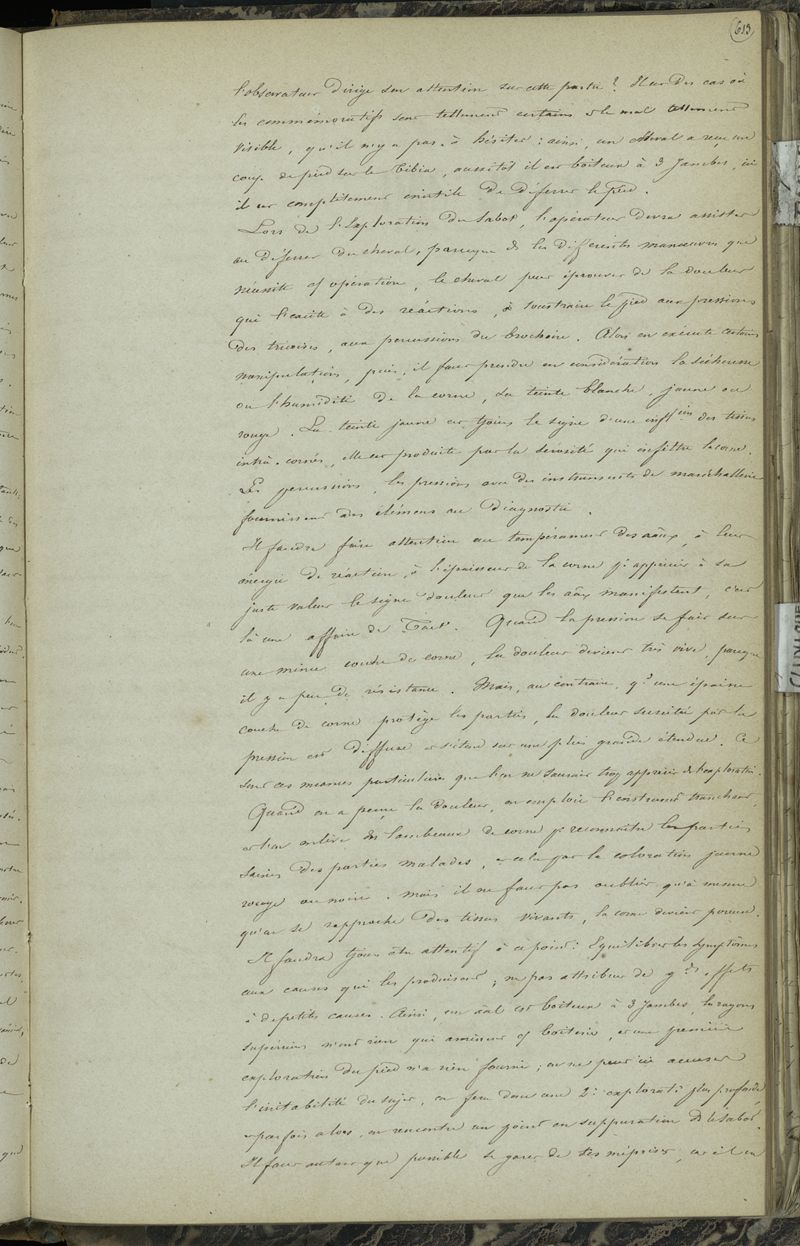 613
l'observateur dirige son attention sur cette partie ? Il est des cas où
les commémoratifs sont tellement certains et le mal tellement
visible, qu'il n'y a pas à hésiter : ainsi, un cheval a reçu un
coup de pied sur le tibia, aussitôt il est boiteux à 3 jambes, ici
il est complètement inutile de déferrer le pied.
Lors de l'exploration du sabot, l'opérateur devra assister
au déferrer du cheval, parceque ds les différentes manœuvres que
nécessite cf opération, le cheval peut éprouver de la douleur
qui l'excite à des réactions, à soustraire le pied aux pressions
des tricoises, aux percussions du brochoir. Alors on exécute certaines
manipulations, puis, il faut prendre en considération la sécheresse
ou l'humidité de la corne, sa teinte blanche, jaune ou
rouge. La teinte jaune est tjours le signe d'une inflon des tissus
intra-cornés, elle est produite par la sérosité qui infiltre la corne.
Les percussions, les pressions avec des instruments de maréchallerie
fournissent des élémens au diagnostic.
Il faudra faire attention au tempérament des aâux, à leur
énergie de réaction, à l'épaisseur de la corne pr apprécier à sa
juste valeur le signe douleur que les aâux manifestent, c'est
là une affaire de tact. Quand la pression se fait sur
une mince couche de corne, la douleur devient très vive, parceque
il y a peu de résistance. Mais, au contraire, qd une épaisse
couche de corne protège les parties, la douleur suscitée par la
pression est diffuse et s'étend sur une plus grande étendue. Ce
sont ces nuances particulières que l'on ne saurait trop apprécier ds l'explorati.
Quand on a perçu la douleur, on emploie l'instrument tranchant,
et l'on enlève des lambeaux de corne pr reconnaître les parties
saines des parties malades, et cela par la coloration jaune
rouge ou noire. Mais il ne faut pas oublier qu'à mesure
qu'on se rapproche des tissus vivants, la corne devient poreuse.
Il faudra tjours être attentif à ce point : Equilibrer les symptômes
aux causes qui les produisent ; ne pas attribuer de gds effets
à de petites causes. Ainsi, un aâl est boiteux à 3 jambes, les rayons
supérieurs n'ont rien qui amènent cf boiterie, et une première
exploration du pied n'a rien fourni ; on ne peut ici accuser
l'irritabilité du sujet, on fera donc une 2e explorati plus profonde
et parfois alors, on rencontre un point en suppuration ds le sabot.
Il faut autant que possible se garer de tes méprises, car il en